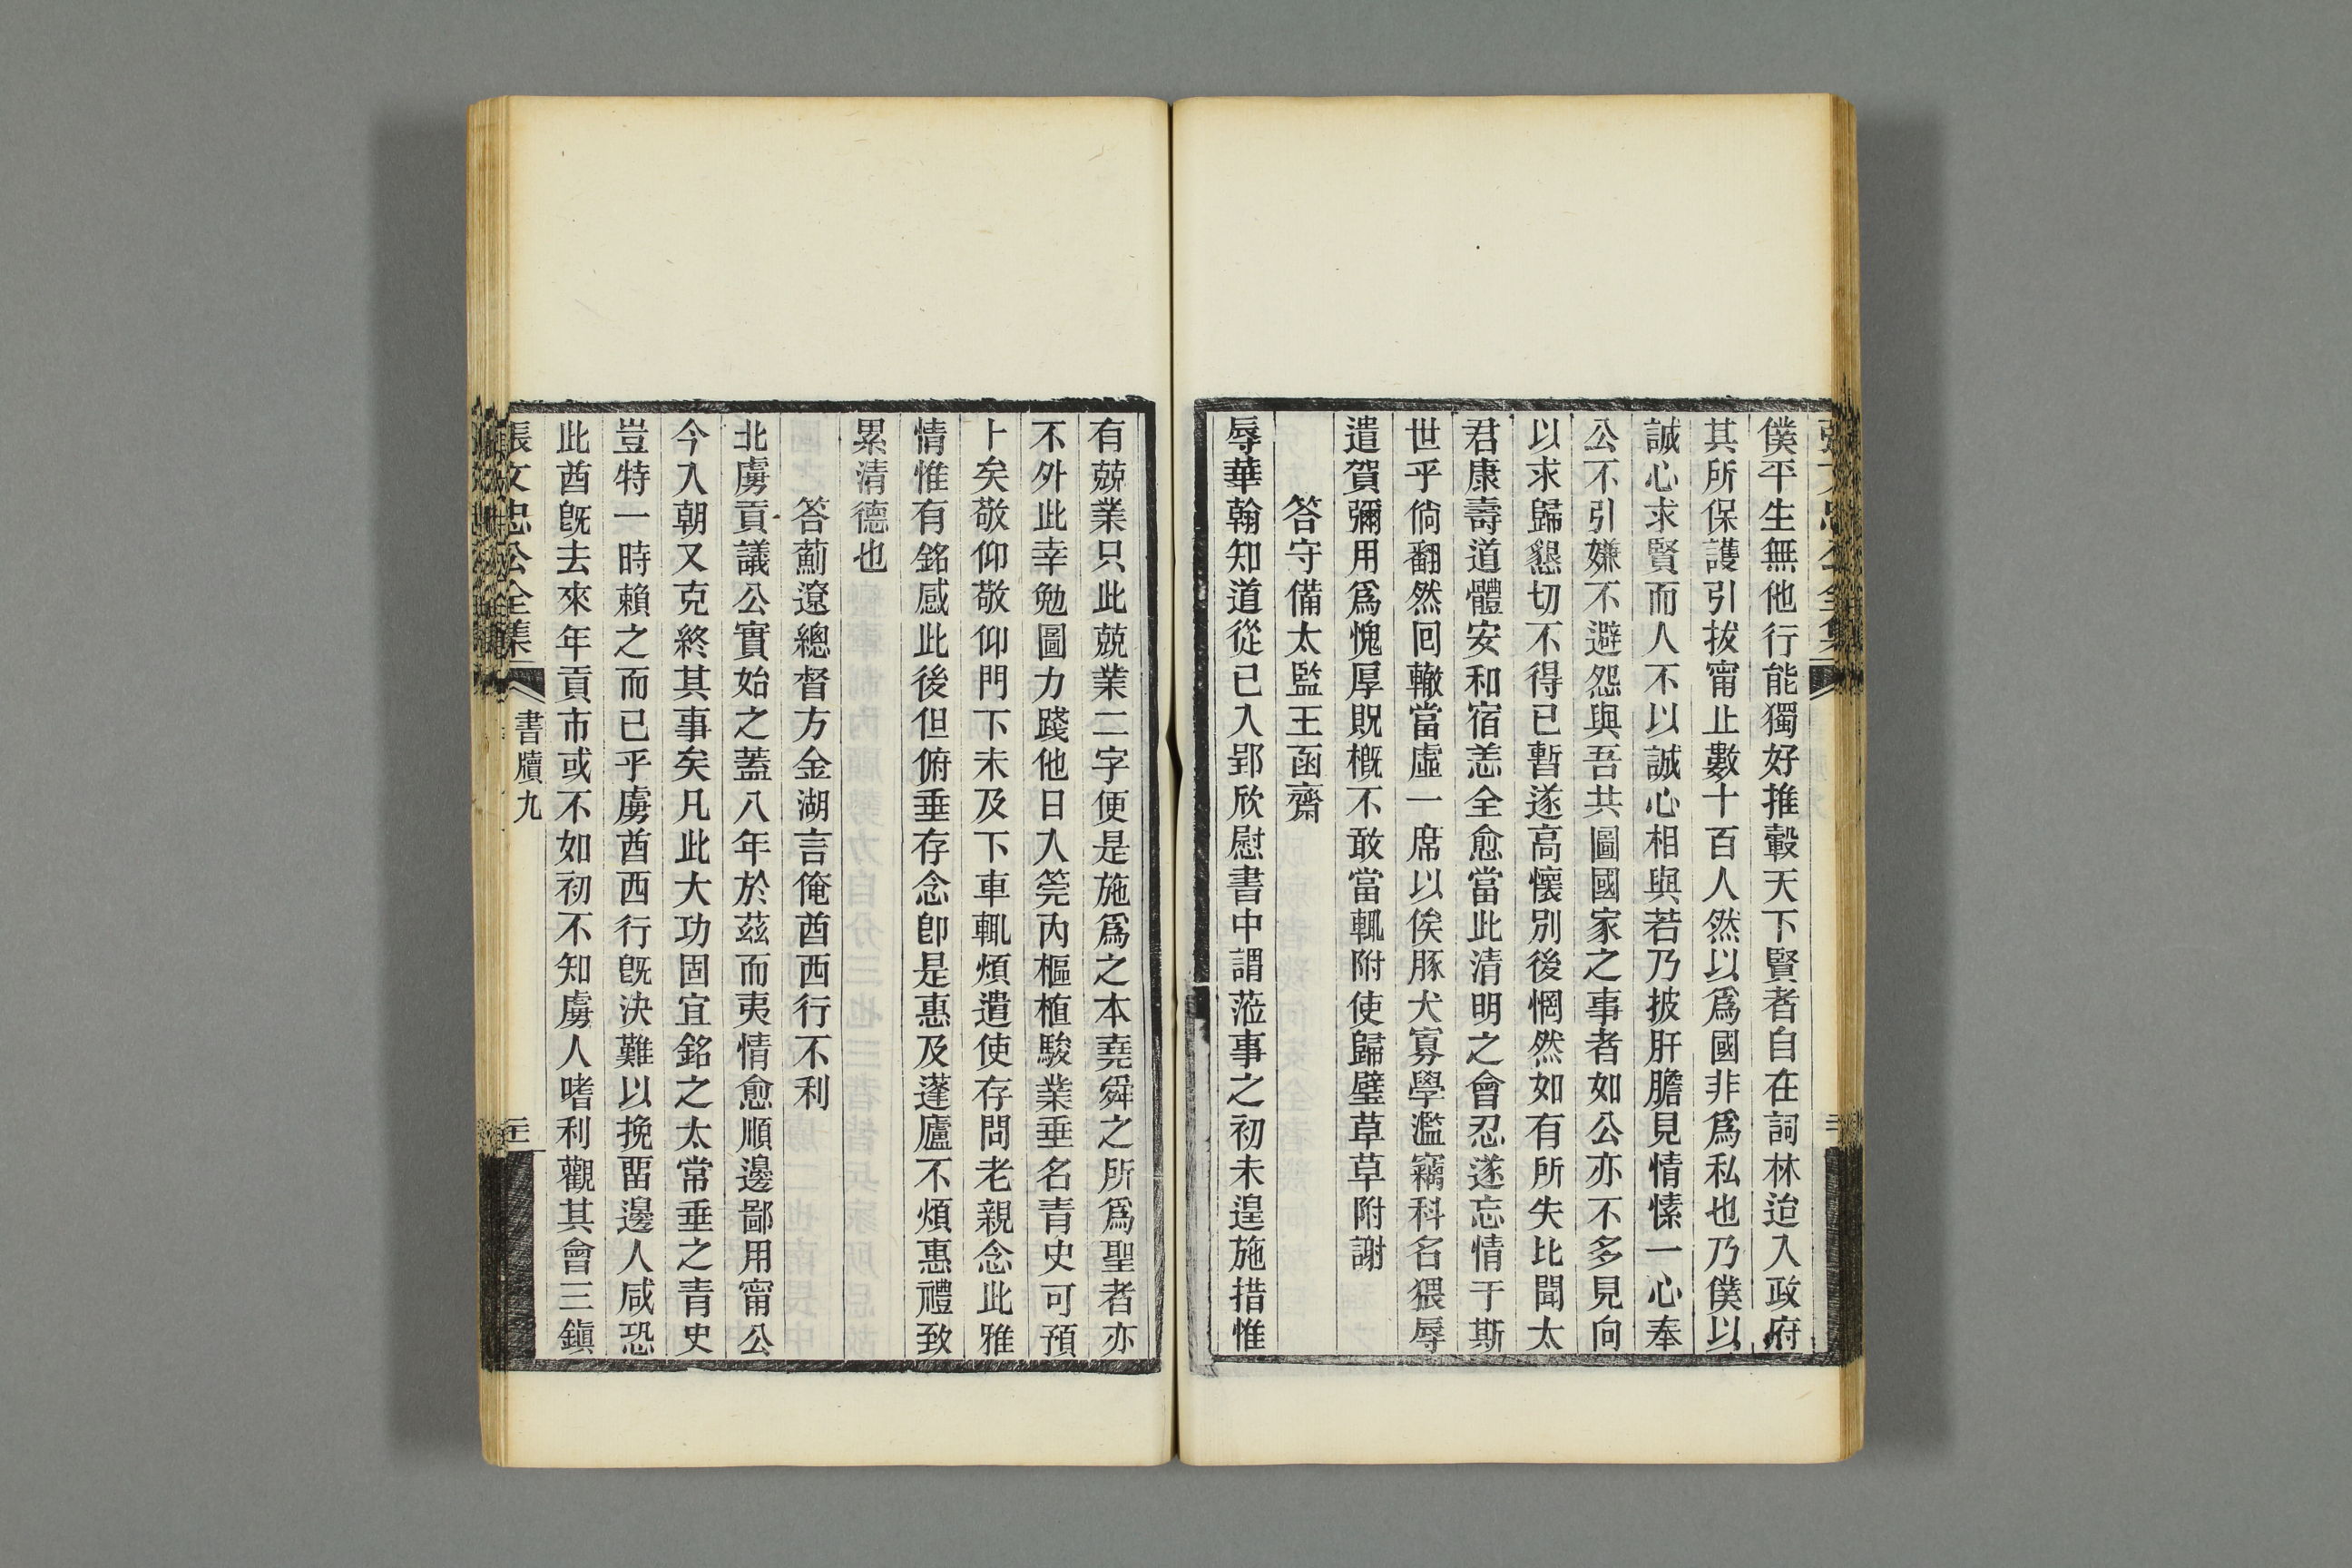 僕平生無他行能獨好推轂天下賢者自在詞林迨入政府
其所保護引拔甯止數十百人然以爲國非爲私也乃僕以
誠心求賢而人不以誠心相與若乃披肝膽見情愫一心奉
公不引嫌不避怨與吾共圖國家之事者如公亦不多見向
以求歸懇切不得已暫遂高懷別後惘然如有所失比聞太
君康壽道體安和宿恙全愈當此清明之會忍遂忘情于斯
世乎倘翻然回轍當虛一席以俟豚犬寡學濫竊科名猥辱
遣賀彌用爲愧厚貺槪不敢當輒附使歸璧草草附謝
答守備太監王函齋
辱華翰知道從已入郢欣慰書中謂蒞事之初未遑施措惟
有兢業只此兢業二字便是施爲之本堯舜之所爲聖者亦
不外此幸勉圖力踐他日入筦內樞植駿業垂名青史可預
卜矣敬仰敬仰門下未及下車輒煩遣使存問老親念此雅
情惟有銘感此後但俯垂存念卽是惠及蓬廬不煩惠禮致
累清德也
答薊遼總督方金湖言俺酋西行不利
北虜貢議公實始之蓋八年於茲而夷情愈順邊鄙用甯公
今入朝又克終其事矣凡此大功固宜銘之太常垂之青史
豈特一時賴之而已乎虜酋西行旣決難以挽留邊人咸恐
此酋旣去來年貢市或不如初不知虜人嗜利觀其會三鎭
張文忠公全集 書牘九